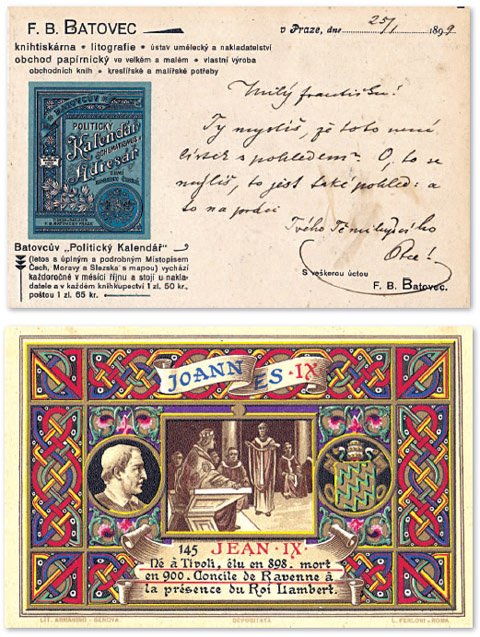 F. B. BATOVEC
knihtiskárna • litografie • ústav umělecký a nakladatelství
obchod papírnický ve velkém a malém • vlastní výroba
obchodních knih • kreslířské a malířské potřeby
v Praze, dne 25/1 1899
BATOVCŮV
POLITICKÝ
Kalendář
SCHEMATISMUS
Adresář
Milý Františku!
Ty myslíš, že toto není
s pohledem. O, to se
mýlíš, to jest také pohled: a
to na práci
Tvého Tě milujícího
Otce!
Batovcův „Politický Kalendář“
(letos s úplným a podrobným Místopisem
Čech, Moravy a Slezska s mapou) vychází
každoročně v měsíci říjnu a stojí u nakla-
datele a v každém knihkupectví 1 zl. 50 kr.,
poštou 1 zl. 65 kr.
S veškerou úctou
F. B. Batovec.
JOANNES · IX
145 JEAN · IX ·
Né à Tivoli, élu en 898. mort
en 900. Concile de Ravenne à
la présence du Roi Lambert.
LIT. ARMANINO - GENOVA
DEPOSITATA
L. FERLONI - ROMA